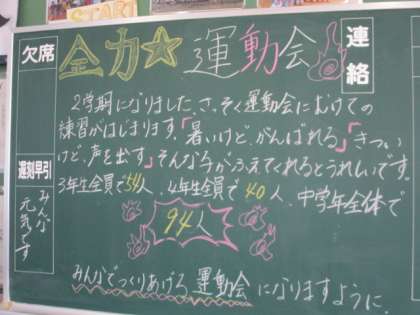 START
欠席
全力☆運動会
連絡
2学期になりました。さっそく運動会にむけての
練習がはじまります。「暑いけど、がんばれる」「きつい
けど、声を出す。」そんな今がふえてくれるとうれしいです。
3年生全員で54人、4年生全員で40人、中学年全体で
94人
みんなでつくりあげる運動会になりますように。
遅刻早引
みんな
元気です